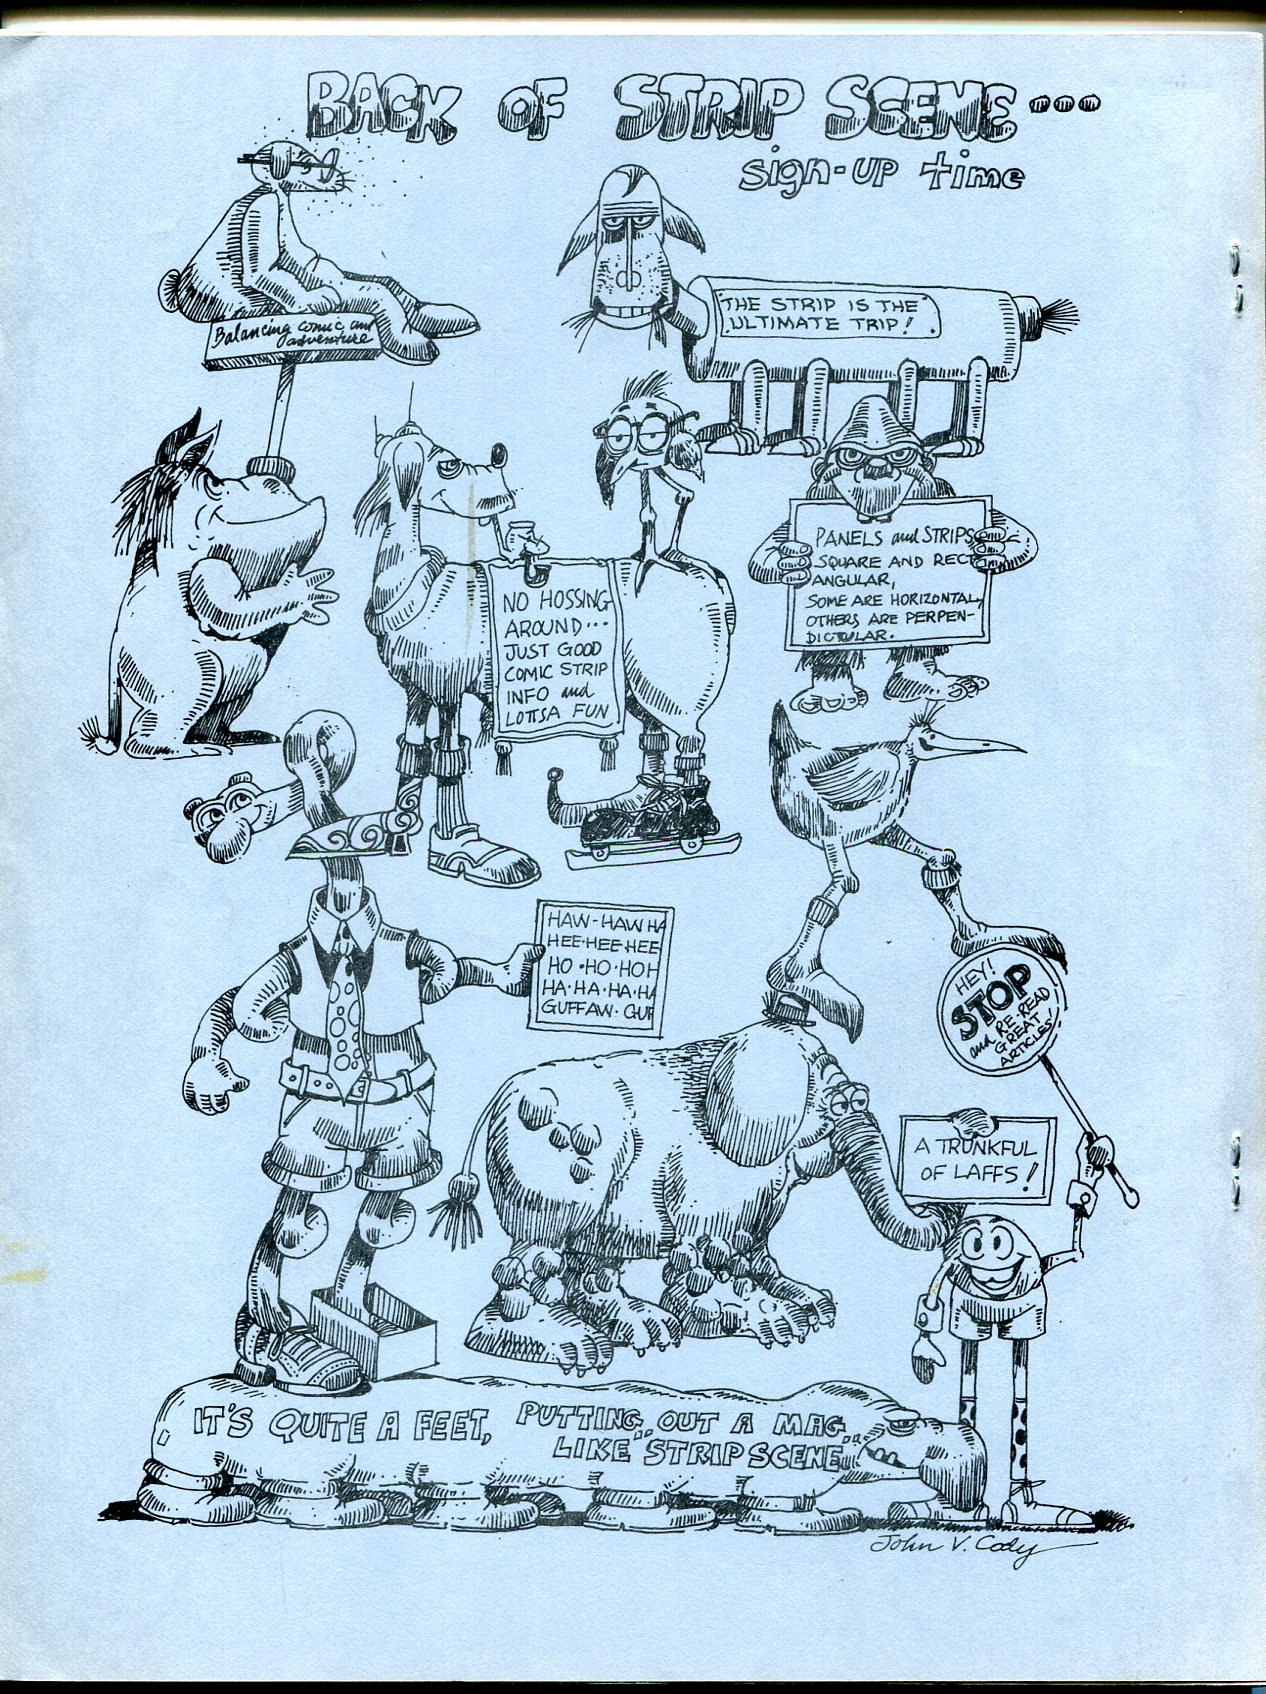 BACK OF STRIP SCENE...
sign-up time
Balancing comic and
adventure
THE STRIP IS THE
ULTIMATE TRIP!
PANELS and STRIPS,
SQUARE AND RECT-
ANGULAR,
SOME ARE HORIZONTAL,
OTHERS ARE PERPEN-
DICTULAR.
NO HOSSING
AROUND...
JUST GOOD
COMIC STRIP
INFO and
LOTTSA FUN
HAW-HAW HA
HEE·HEE·HEE
HO·HO·HOH
HA·HA·HA·HA
GUFFAW·GUF
HEY!
STOP
and RE-READ
GREAT
ARTICLES!
A TRUNKFUL
OF LAFFS!
IT'S QUITE A FEET, PUTTING OUT A MAG
LIKE "STRIP SCENE"
John V. Cody